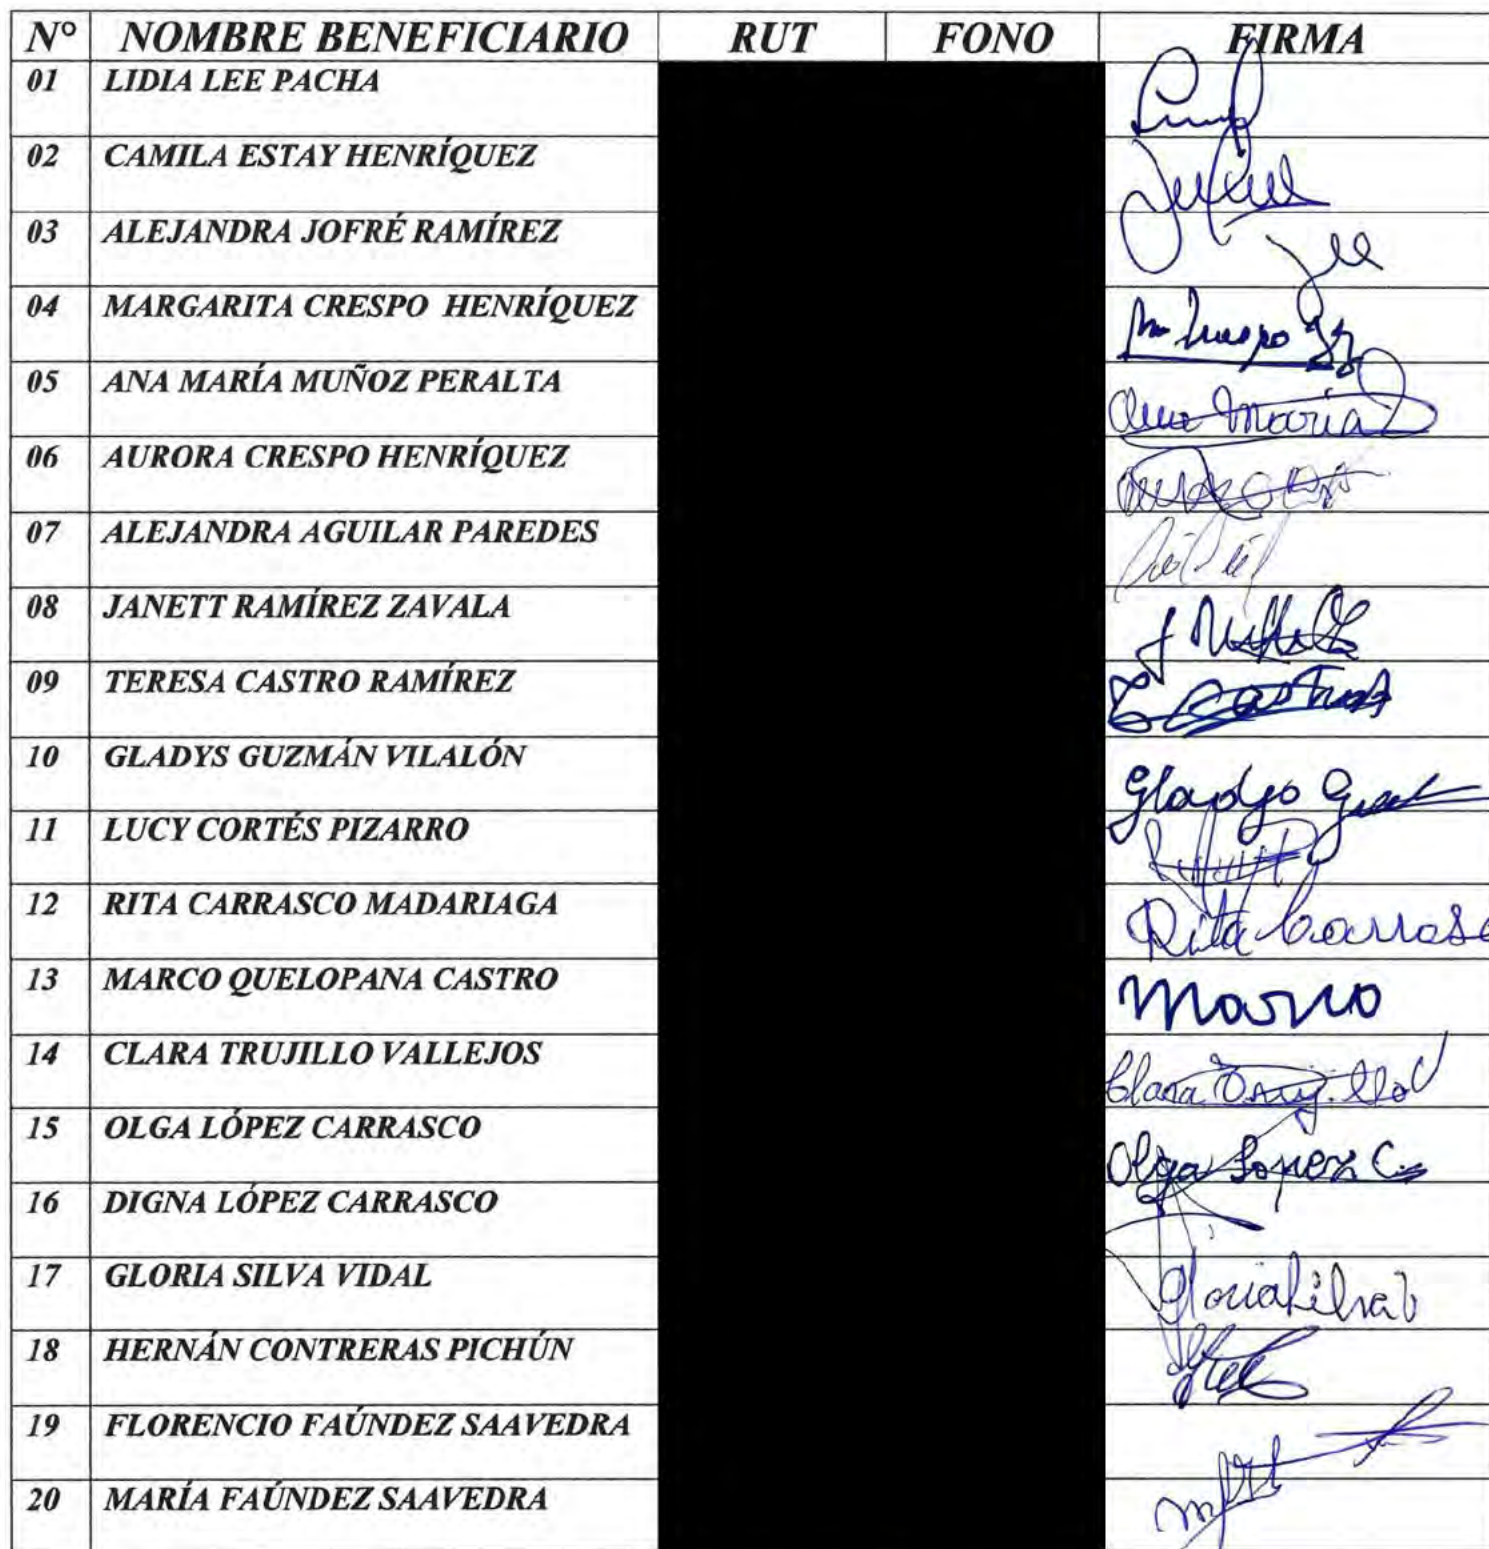 N° NOMBRE BENEFICIARIO RUT FONO FIRMA
01 LIDIA LEE PACHA
02 CAMILA ESTAY HENRÍQUEZ
03 ALEJANDRA JOFRÉ RAMÍREZ
04 MARGARITA CRESPO HENRÍQUEZ
05 ANA MARÍA MUÑOZ PERALTA Ana María
06 AURORA CRESPO HENRÍQUEZ
07 ALEJANDRA AGUILAR PAREDES
08 JANETT RAMÍREZ ZAVALA
09 TERESA CASTRO RAMÍREZ
10 GLADYS GUZMÁN VILALÓN Gladys
11 LUCY CORTÉS PIZARRO
12 RITA CARRASCO MADARIAGA Rita Carrasc
13 MARCO QUELOPANA CASTRO Marco
14 CLARA TRUJILLO VALLEJOS Clara Trujillo V
15 OLGA LÓPEZ CARRASCO Olga Lopez C.
16 DIGNA LÓPEZ CARRASCO
17 GLORIA SILVA VIDAL Gloria Silva V
18 HERNÁN CONTRERAS PICHÚN
19 FLORENCIO FAÚNDEZ SAAVEDRA
20 MARÍA FAÚNDEZ SAAVEDRA